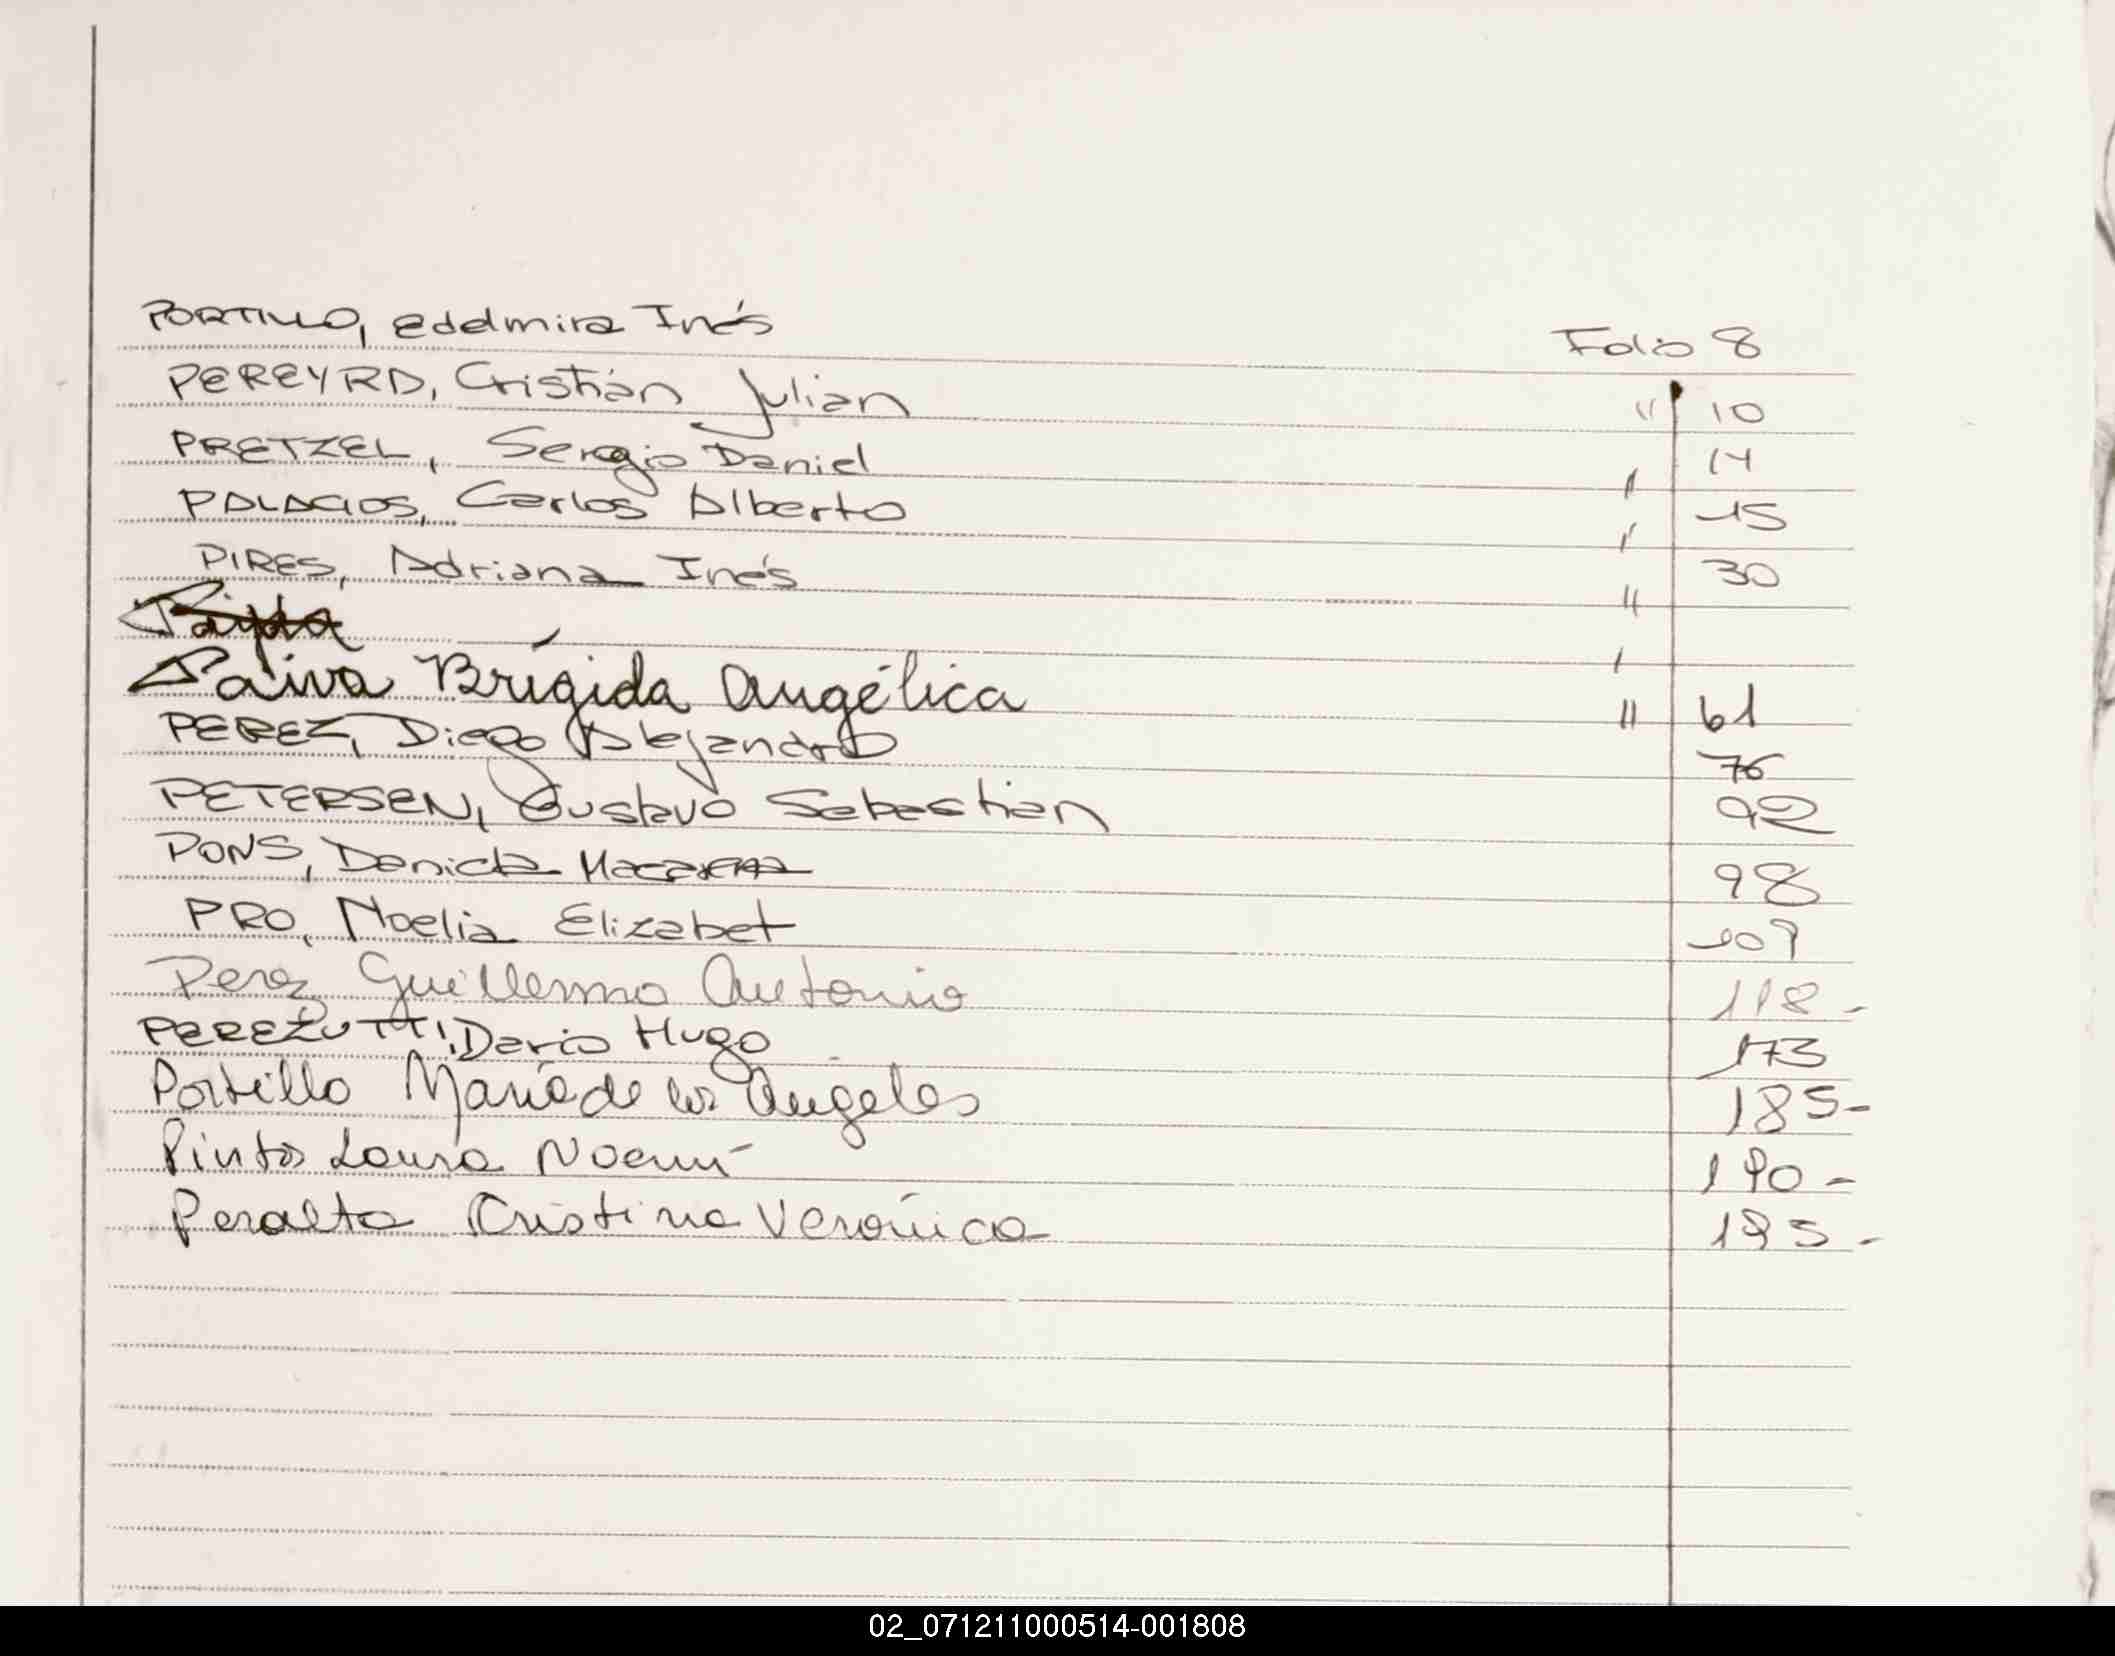 PORTILLO, Edelmira Inés Folio 8
PEREYRA, Cristián Julian " 10
PRETZEL, Sergio Daniel " 14
PALACIOS, Carlos Alberto " 15
PIRES, Adriana Inés " 30
Paiva Brígida Angélica " 61
PEREZ, Diego Alejandro 76
PETERSEN, Gustavo Sebastian 92
PONS, Daniela Macarena 98
PRO, Noelia Elizabet 109
Perez Guillermo Antonio 118-
PEREZUTTI, Dario Hugo 173
Portillo María de los Angeles 185-
Pintos Laura Noemí 190-
Peralta Cristina Verónica 195-
02_071211000514-001808